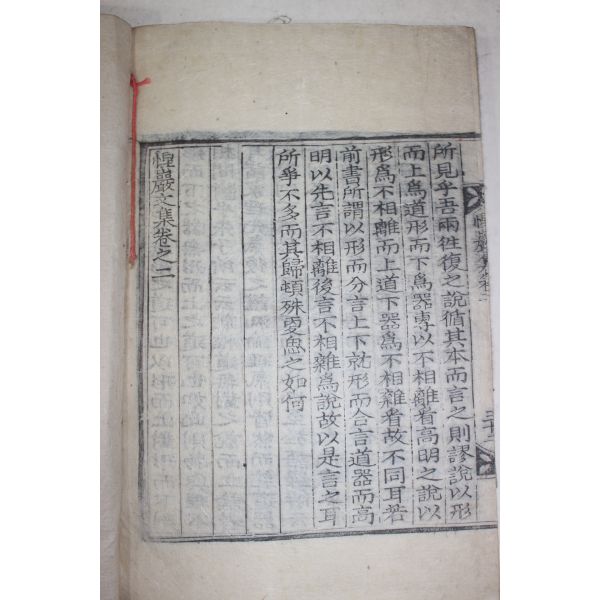 所見乎吾兩往復之說循其本而言之則謬說以形
而上爲道形而下爲器專以不相離看高明之說以
形爲不相離而上道下器爲不相雜看故不同耳若
前書所謂以形而分言上下就形而合言道器而高
明以先言不相離後言不相雜爲說故以是言之耳
所爭不多而其歸頓殊更思之如何
惺巖文集卷之二